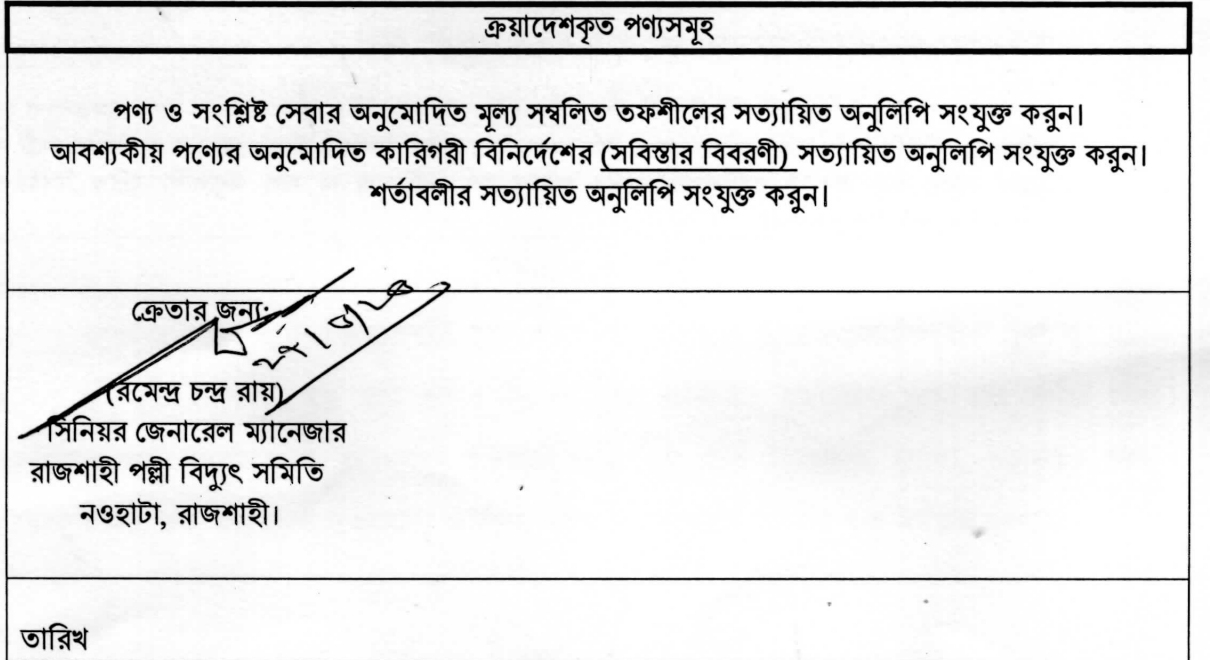 ক্রয়াদেশকৃত পণ্যসমূহ
পণ্য ও সংশ্লিষ্ট সেবার অনুমোদিত মূল্য সম্বলিত তফশীলের সত্যায়িত অনুলিপি সংযুক্ত করুন।
আবশ্যকীয় পণ্যের অনুমোদিত কারিগরী বিনির্দেশের (সবিস্তার বিবরণী) সত্যায়িত অনুলিপি সংযুক্ত করুন।
শর্তাবলীর সত্যায়িত অনুলিপি সংযুক্ত করুন।
ক্রেতার জন্য:
(রমেন্দ্র চন্দ্র রায়)
সিনিয়র জেনারেল ম্যানেজার
রাজশাহী পল্লী বিদ্যুৎ সমিতি
নওহাটা, রাজশাহী।
তারিখ